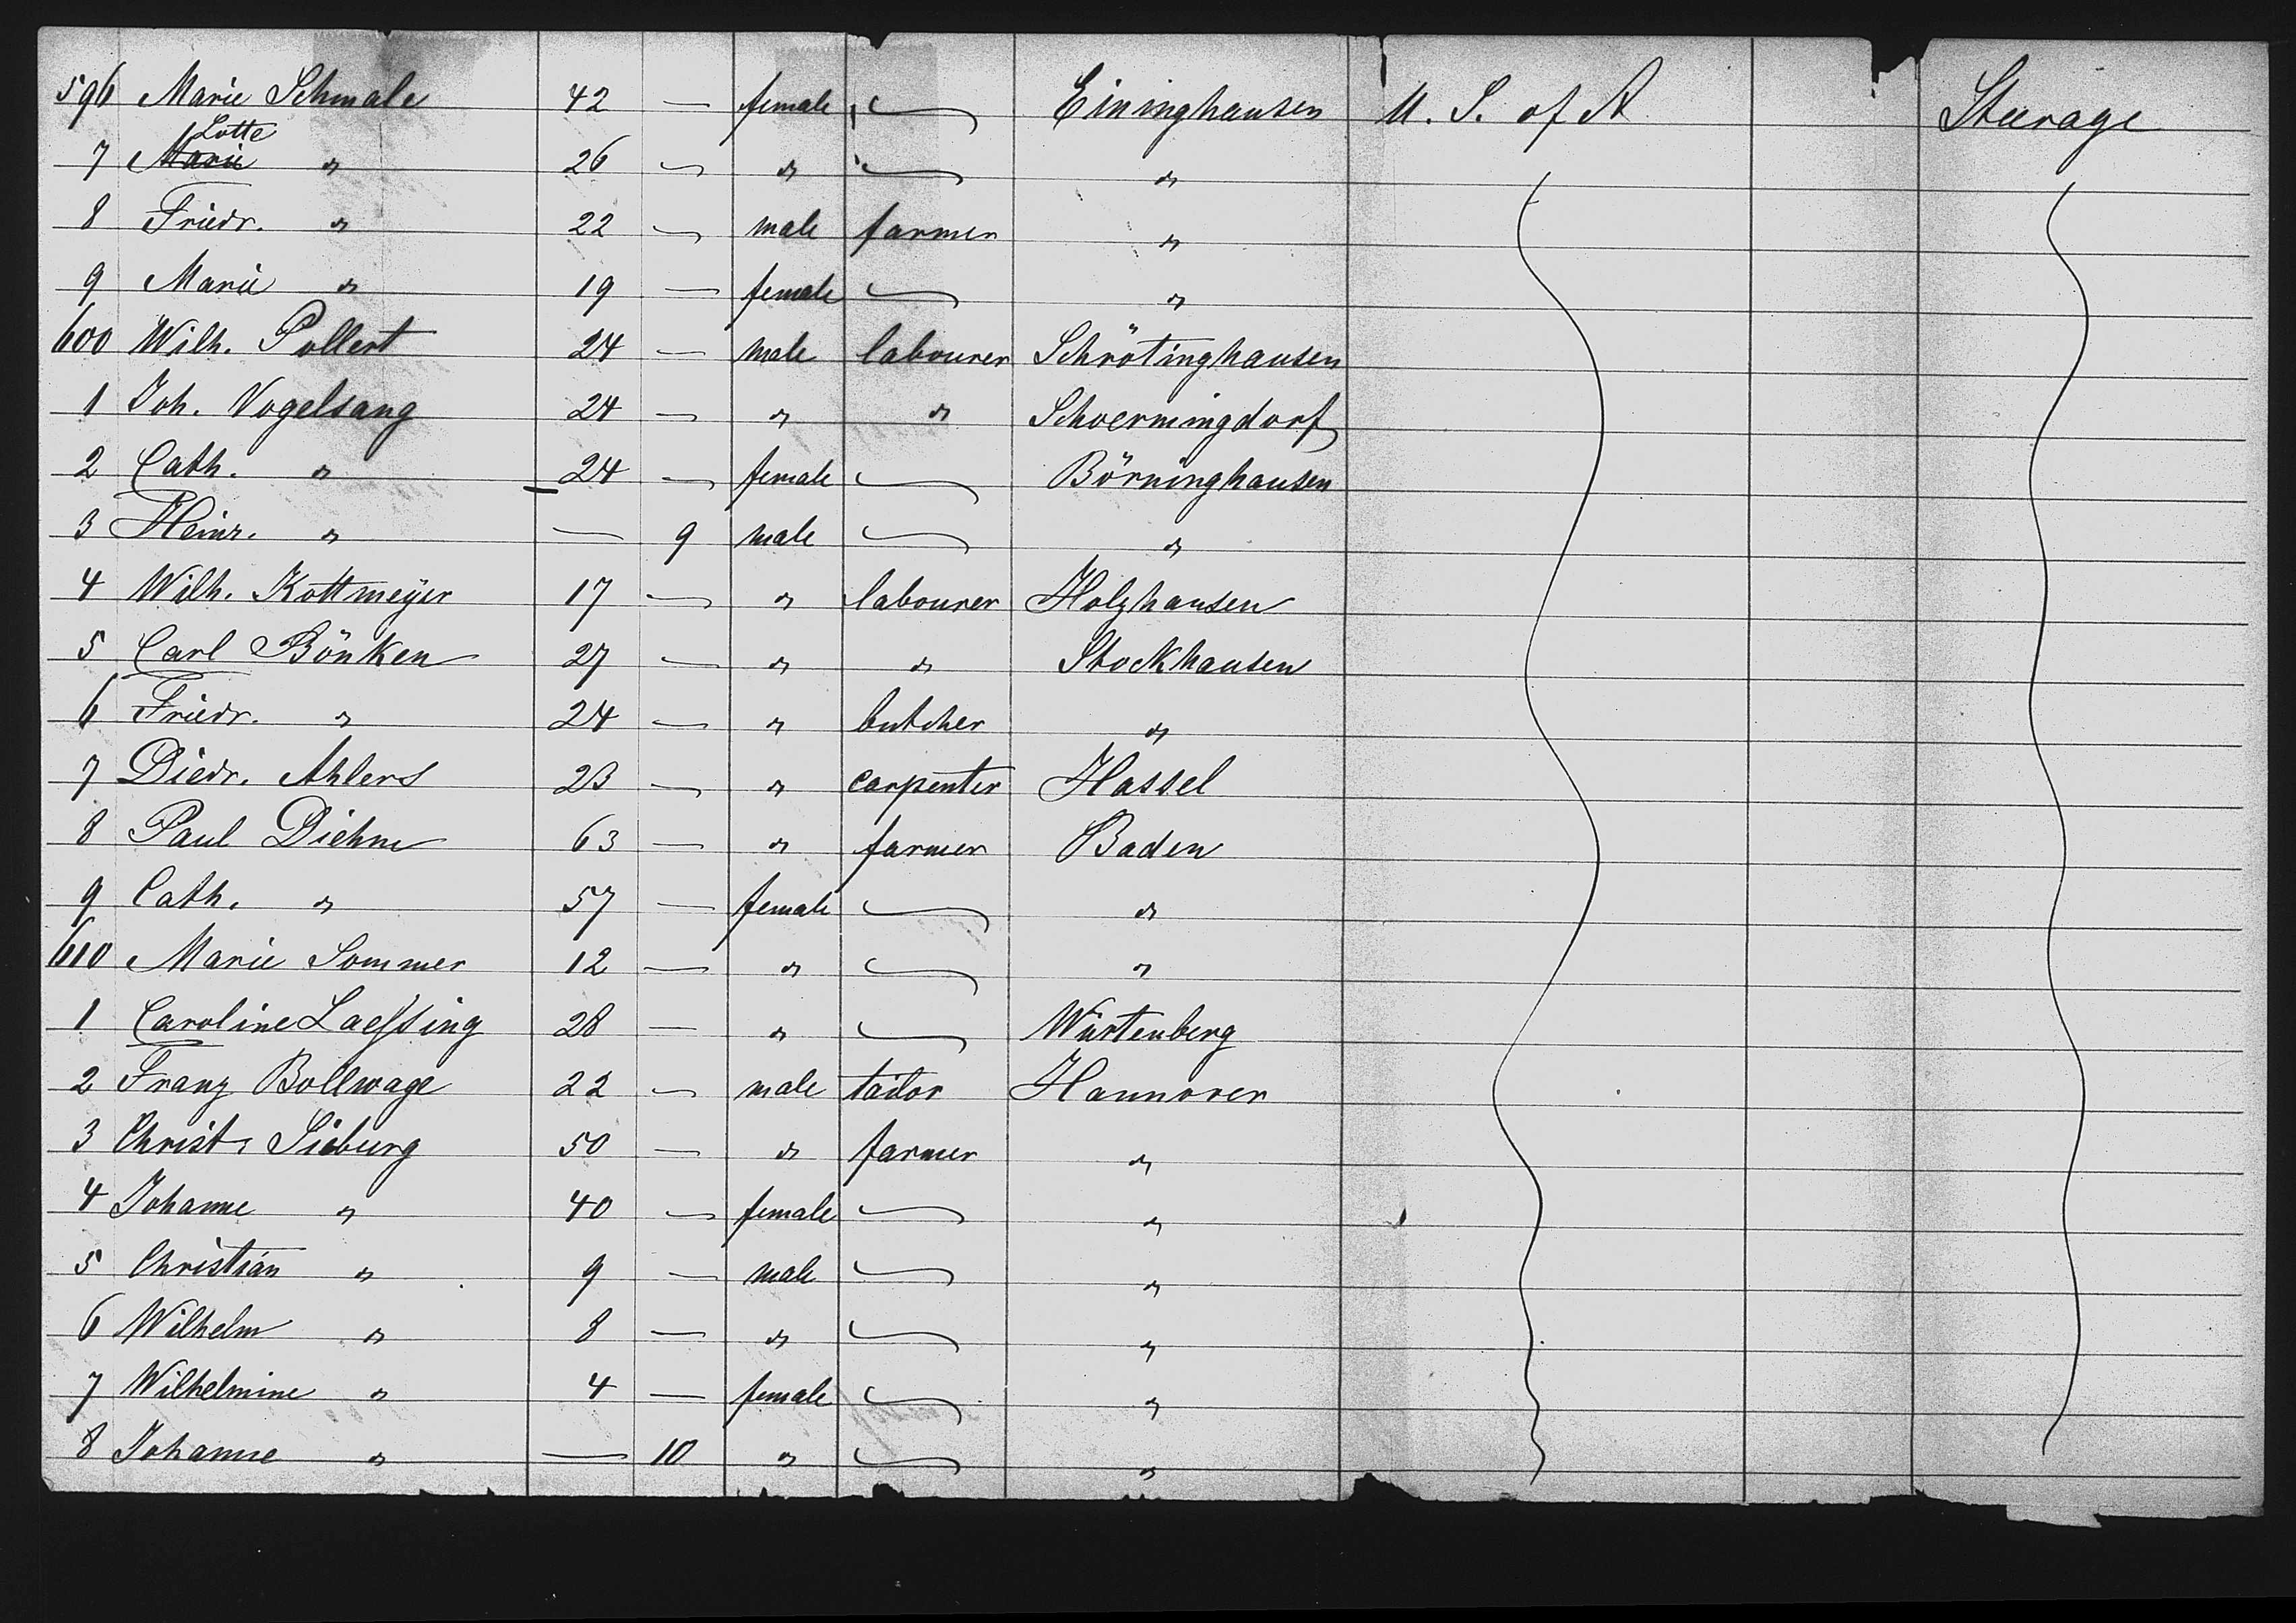 596 Marie Schmale 42 — female — Eininghausen U. S. of A Steerage
Lotte
7 Marie " 26 — " — "
8 Friedr. " 22 — male farmer "
9 Marie " 19 — female — "
600 Wilh. Pollert 24 — male labourer Schrötinghausen
1 Joh. Vogelsang 24 — " " Schoerningdorf
2 Cath. " 24 — female — Börninghausen
3 Heinr. " — 9 male — "
4 Wilh. Kottmeÿer 17 — " labourer Holzhausen
5 Carl Bönken 27 — " " Stockhausen
6 Friedr. " 24 — " butcher "
7 Diedr. Ahlers 23 — " carpenter Hassel
8 Paul Diehm 63 — " farmer Baden
9 Cath. " 57 — female — "
610 Marie Sommer 12 — " — "
1 Caroline Laeſsing 28 — " — Würtenberg
2 Franz Bollwage 22 — male tailor Hannover
3 Christ. Sieburg 50 — " farmer "
4 Johanne " 40 — female — "
5 Christian " 9 — male — "
6 Wilhelm " 8 — " — "
7 Wilhelmine " 4 — female — "
8 Johanne " — 10 " — "